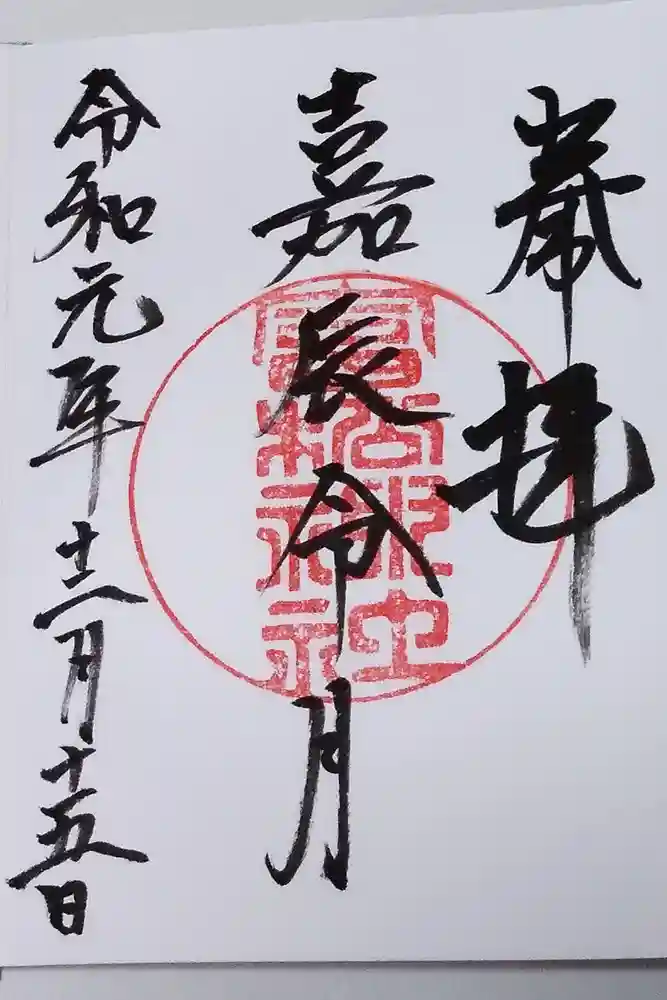 奉拝
嘉辰令月
富松神社
令和元年十二月十五日